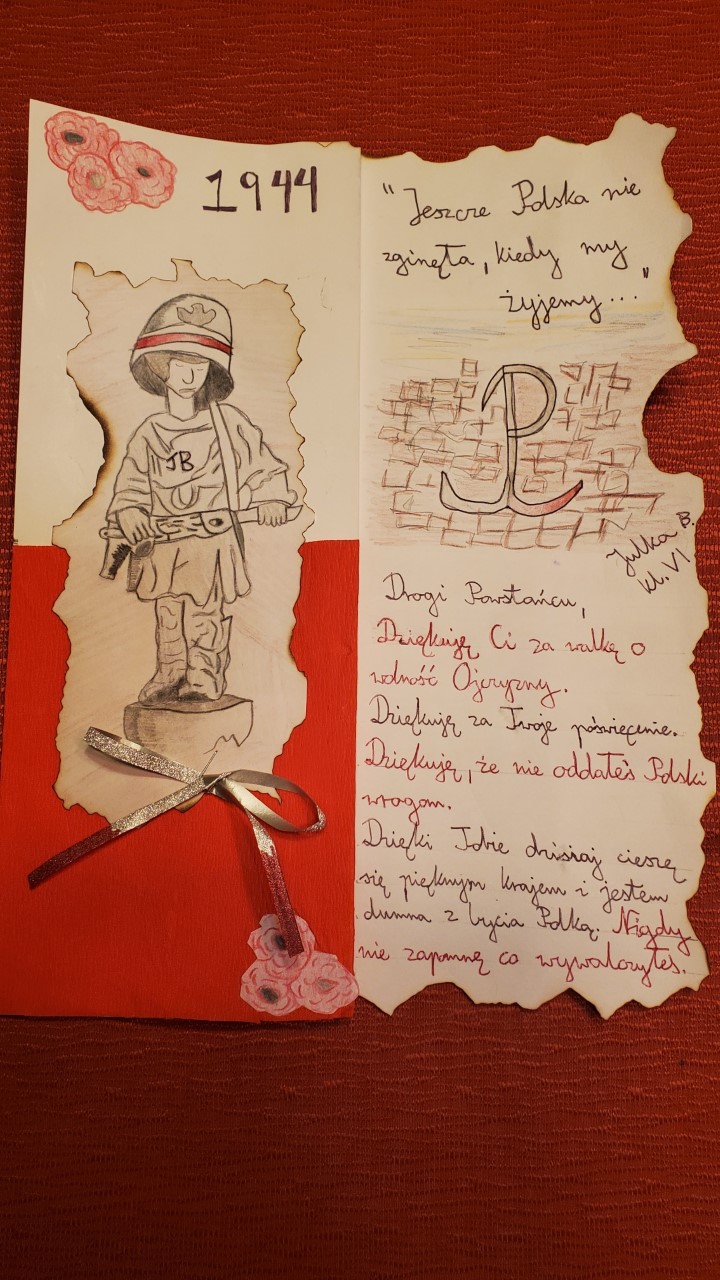 1944
JB
"Jeszcze Polska nie
zginęła, kiedy my
żyjemy..."
Julka B.
kl. VI
Drogi Powstańcu,
Dziękuję Ci za walkę o
wolność Ojczyzny.
Dziękuję za Twoje poświęcenie.
Dziękuję, że nie oddałeś Polski
wrogom.
Dzięki Tobie dzisiaj cieszę
się pięknym krajem i jestem
dumna z bycia Polką. Nigdy
nie zapomnę co wywalczyłeś.